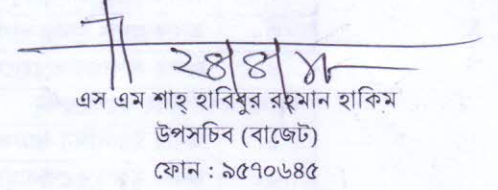 ২৪/৪/
এস এম শাহ্ হাবিবুর রহমান হাকিম
উপসচিব (বাজেট)
ফোন : ৯৫৭০৬৪৫